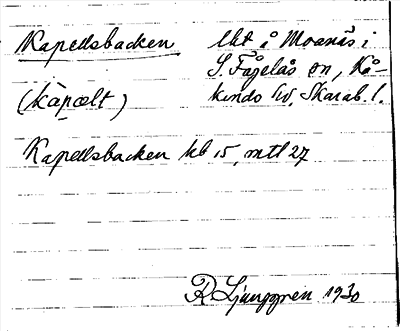 Kapellsbacken lht å Moanäs i
S. Fågelås sn, Kå-
(kàpælt) kinds hd, Skarab. l.
Kapellsbacken hb 15, mtl 27
R Ljunggren 1930